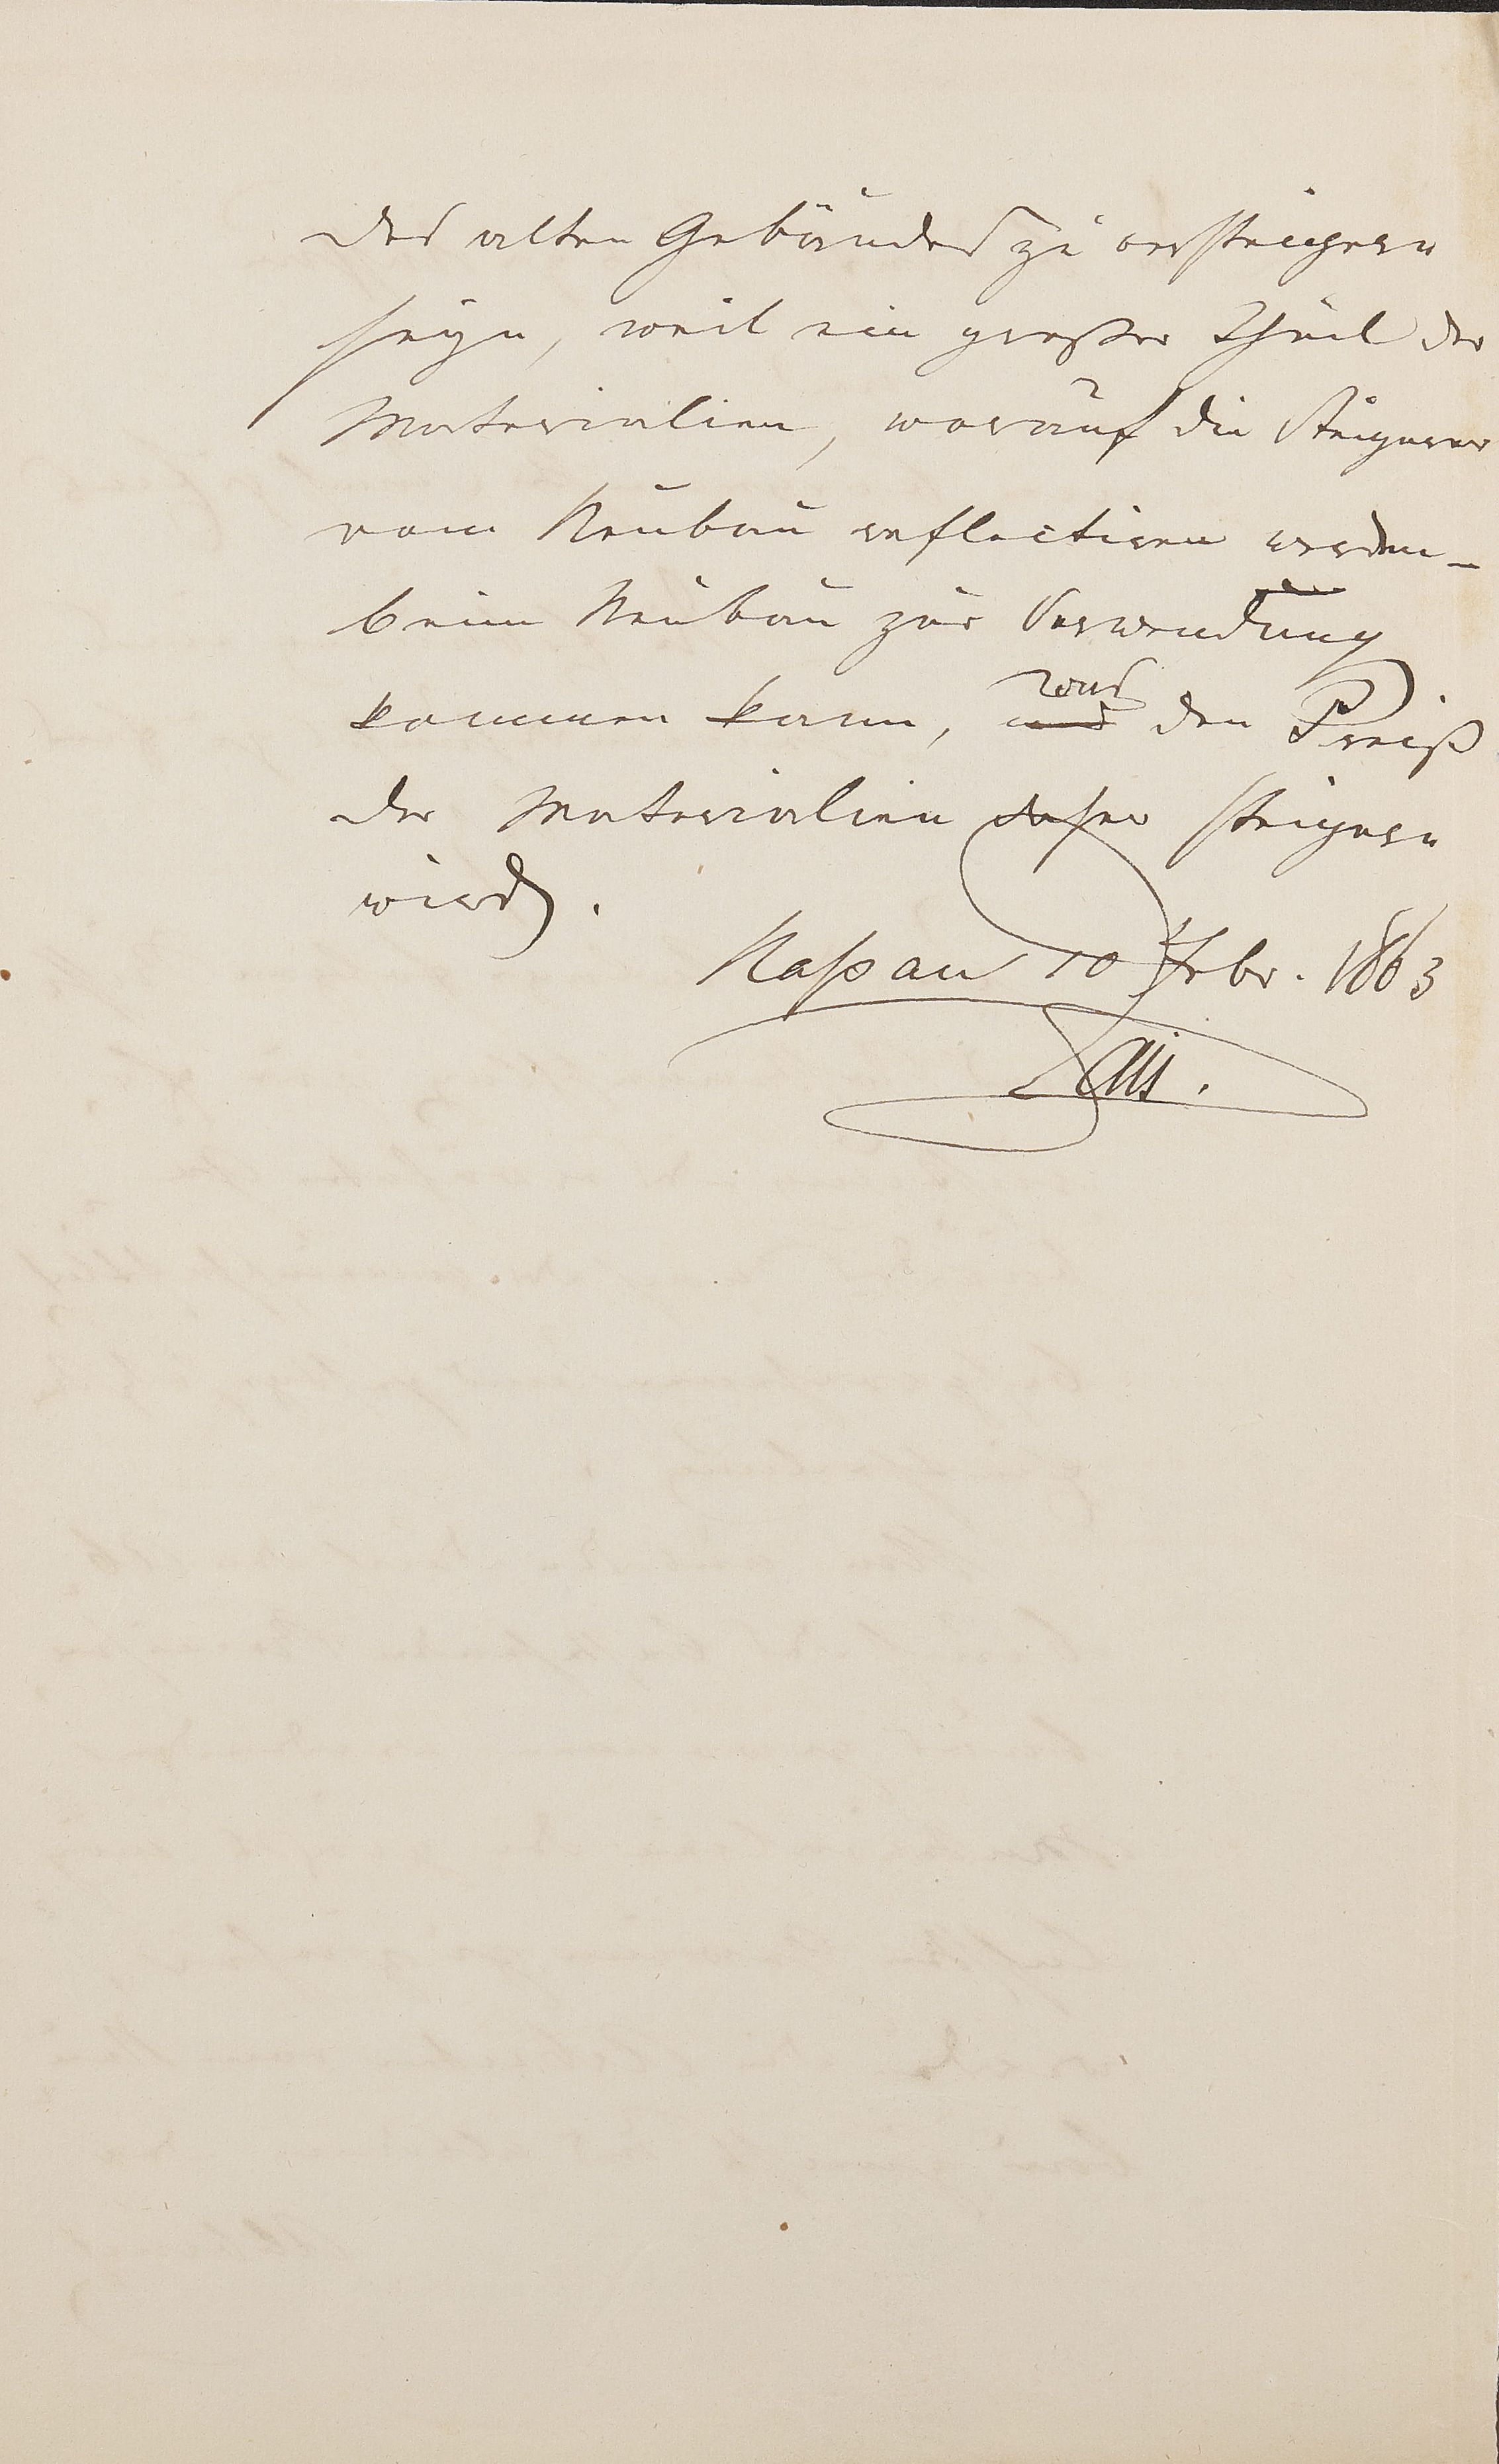 des alten Gebäudes zu versteigern
seyn, weil ein großer Theil der
Materialien, worauf die Steigerer
vom Neubau reflectiren werden
beim Neubau zur Verwendung
kommen kann, was den Preiß
der Materialien daher steigern
wird.
Naßau 10 Febr. 1863